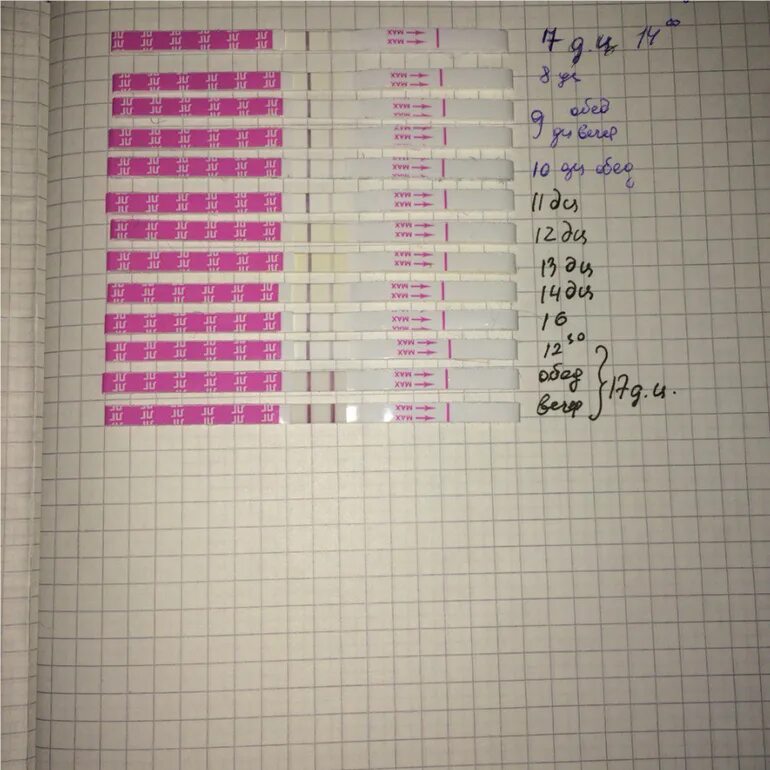 MAX 17 д.ц. 14⁰⁰
MAX 8 дц
MAX 9 обед
MAX дц вечер
MAX 10 дц обед
MAX 11 дц
MAX 12 дц
MAX 13 дц
MAX 14 дц
MAX 16
MAX 12³⁰
MAX обед 17 д.ц.
MAX вечер